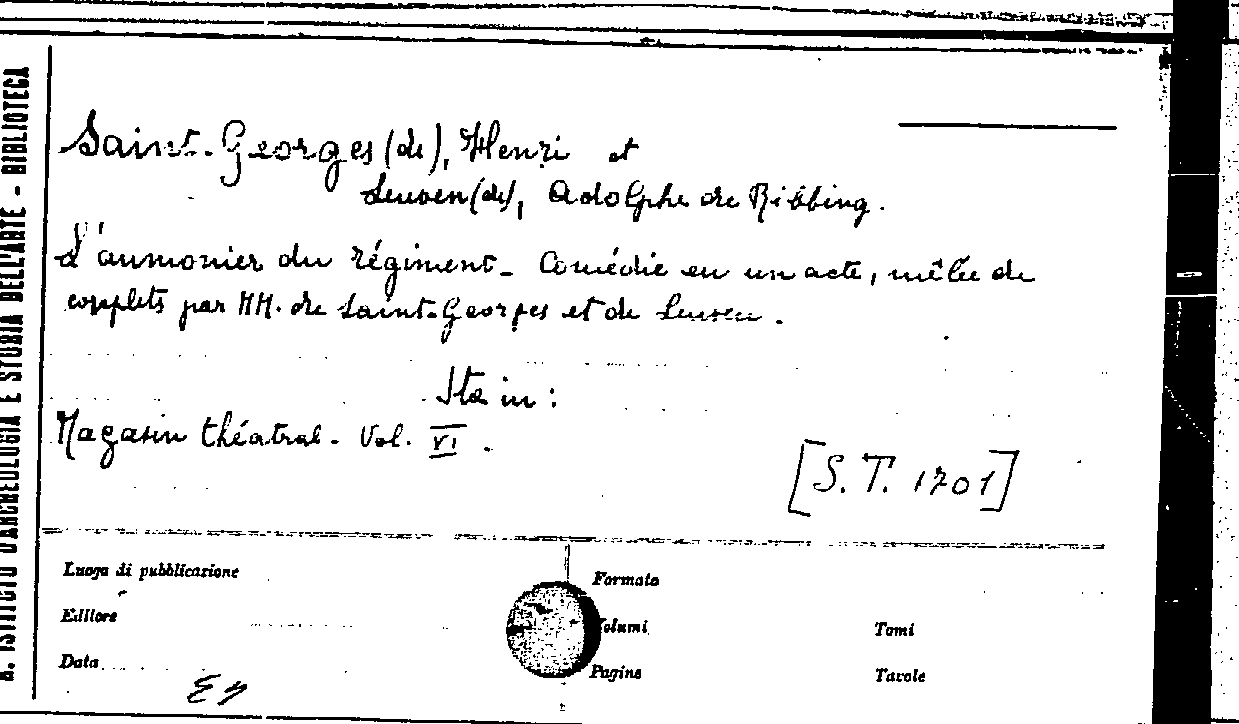 R. ISTITUTO D'ARCHEOLOGIA E STORIA DELL'ARTE - BIBLIOTECA
Saint-Georges (de), Henri et
Leuven (de), Adolphe de Ribbing.
L'aumonier du régiment - Comédie en un acte, mêlée de
couplets par MM. de Saint-Georges et de Leuven.
Sta in:
Magasin théatral - Vol. VI.
[S. T. 1701]
Luogo di pubblicazione
Formato
Editore
Volumi
Tomi
Data
Pagine
Tavole